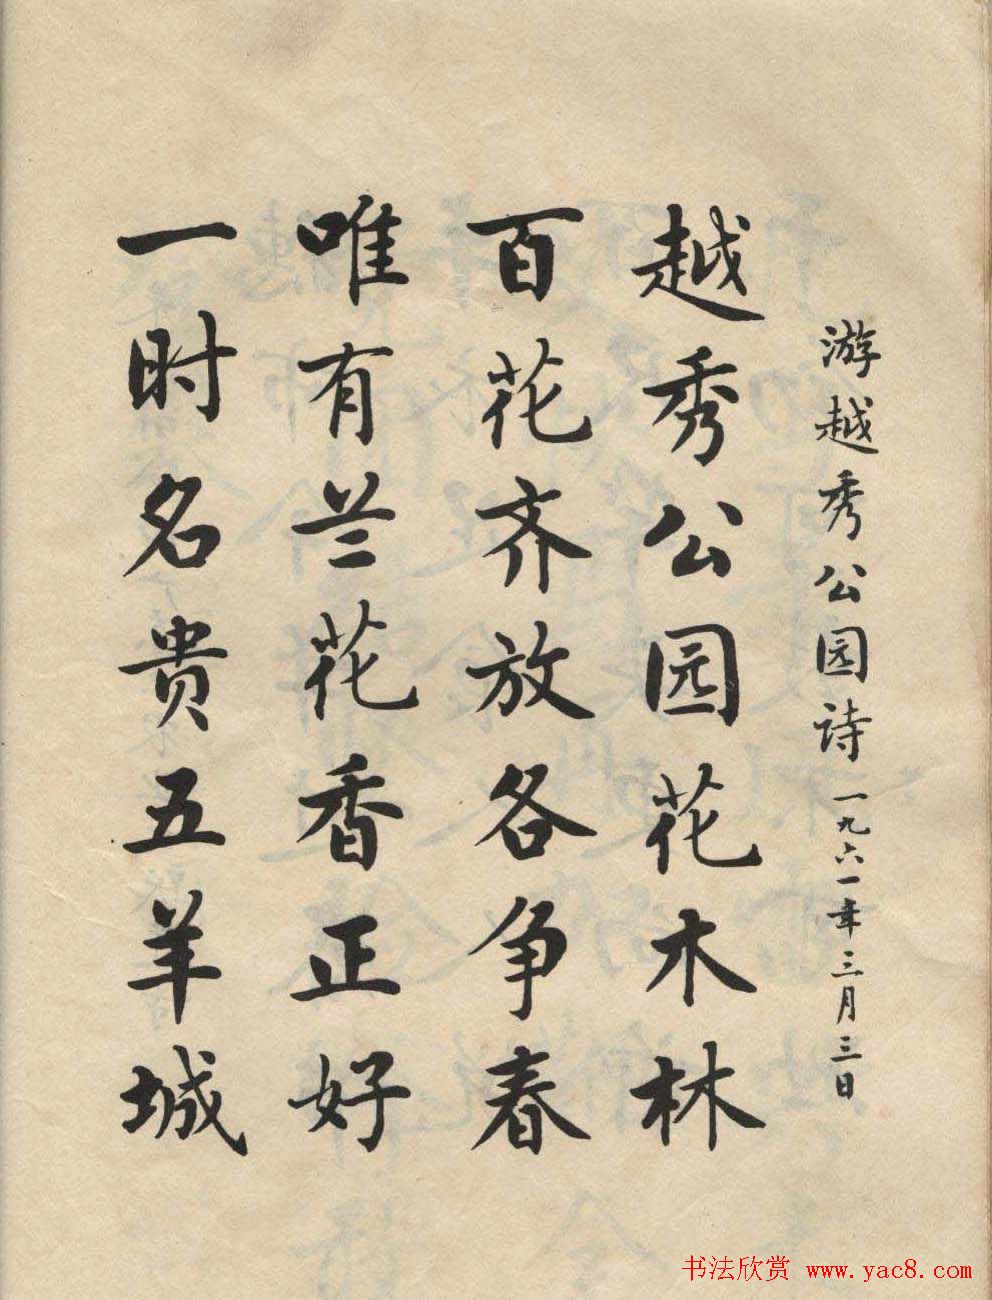 游越秀公园诗 一九六一年三月三日
越秀公园花木林
百花齐放各争春
唯有兰花香正好
一时名贵五羊城
书法欣赏 www.yac8.com